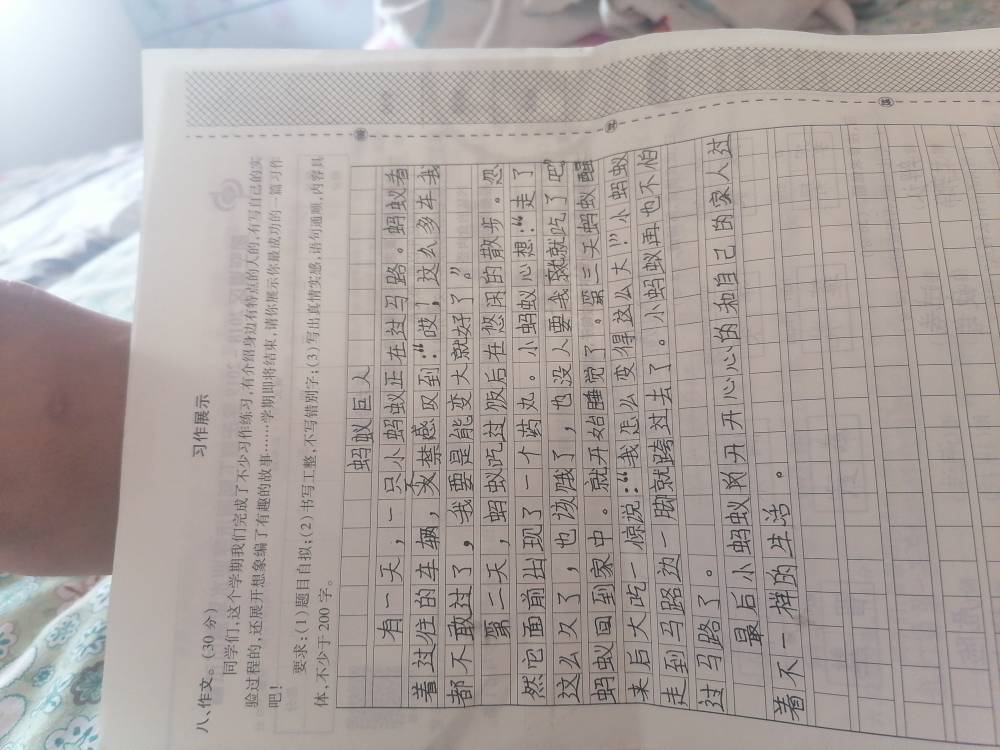 习作展示
八、作文。(30分)
同学们,这个学期我们完成了不少习作练习,有介绍身边有特点的人的,有写自己的实
验过程的,还展开想象编了有趣的故事……学期即将结束,请你展示你最成功的一篇习作
吧!
要求:(1)题目自拟;(2)书写工整,不写错别字;(3)写出真情实感,语句通顺,内容具
体,不少于200字。
蚂蚁巨人
有一天,一只小蚂蚁正在过马路。蚂蚁看
着过往的车辆,不禁感叹到:“哎!这么多车我
都不敢过了,我要是能变大就好了。”
第二天,蚂蚁吃过饭后在悠闲的散步。忽
然它面前出现了一个药丸。小蚂蚁心想:“走了
这么久了,也该饿了,也没人要我就吃了吧”
蚂蚁回到家中。就开始睡觉了。第三天蚂蚁醒
来后大吃一惊说:“我怎么变得这么大!”小蚂蚁
走到马路边一脚就跨过去了。小蚂蚁再也不怕
过马路了。
最后小蚂蚁开开心心的和自己的家人过
着不一样的生活。